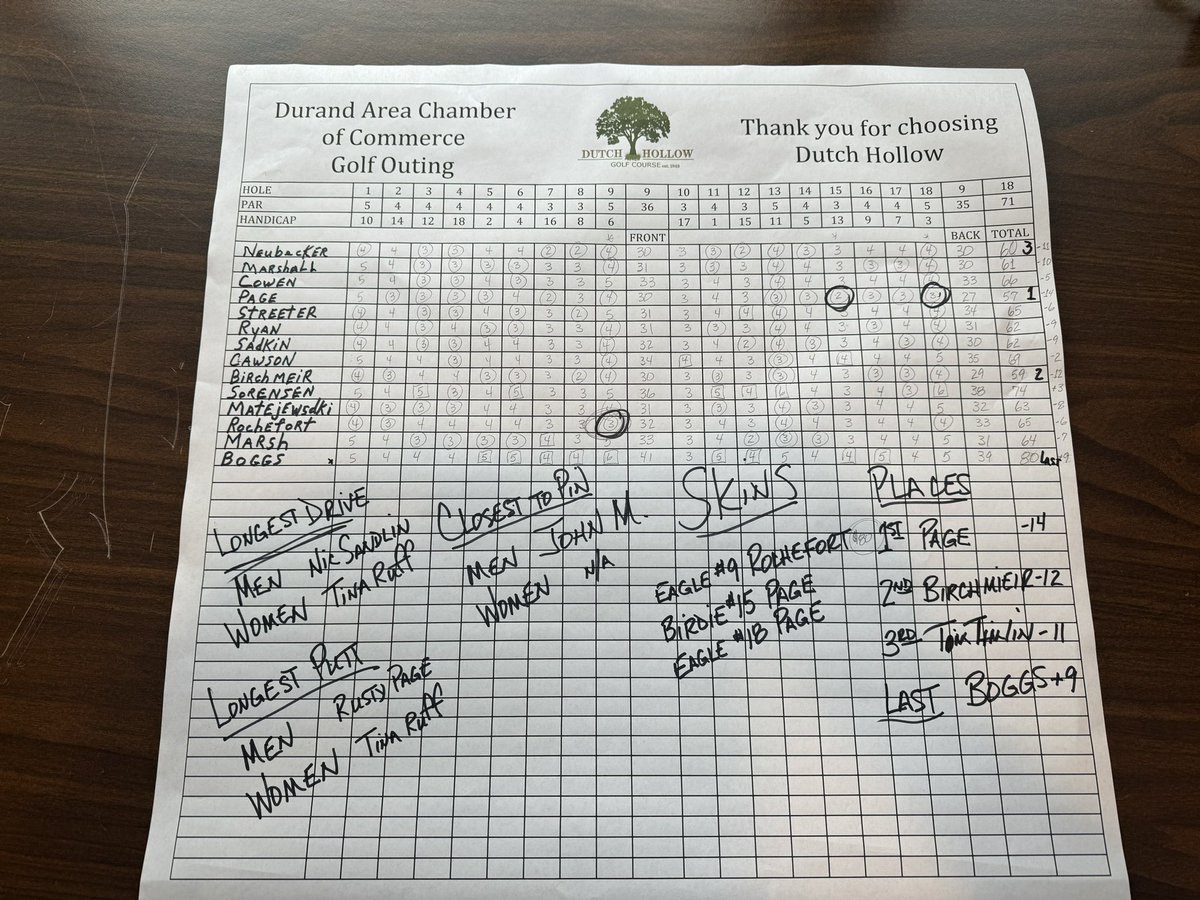 Durand Area Chamber
of Commerce
Golf Outing
DUTCH HOLLOW
GOLF COURSE est. 1969
Thank you for choosing
Dutch Hollow
HOLE 1 2 3 4 5 6 7 8 9 9 10 11 12 13 14 15 16 17 18 9 18
PAR 5 4 4 4 4 4 3 3 5 36 3 4 3 5 4 3 4 4 5 35 71
HANDICAP 10 14 12 18 2 4 16 8 6 17 1 15 11 5 13 9 7 3
FRONT BACK TOTAL
NEUBACKER 4 4 3 3 4 4 2 2 4 30 3 3 2 4 4 3 4 4 4 30 60 3 -11
MARSHALL 5 4 3 3 3 3 3 3 4 31 3 3 3 4 4 3 3 3 4 30 61 -10
COWEN 5 4 3 3 4 3 3 3 5 33 3 4 3 4 4 3 4 4 4 33 66 -5
PAGE 5 3 3 3 3 4 2 3 4 30 3 4 3 3 3 2 3 3 3 27 57 1 -14
STREETER 4 4 3 3 4 3 3 2 5 31 34 65 -6
RYAN 4 4 3 4 3 3 3 3 4 31 3 3 3 4 4 3 3 4 4 31 62 -9
SADKIN 4 4 3 3 4 4 3 3 4 32 3 4 2 4 3 3 4 3 4 30 62 -9
CAWSON 5 4 4 3 4 4 3 3 4 34 4 4 3 3 4 4 4 4 5 35 69 -2
BIRCHMEIR 4 3 4 4 3 3 3 2 4 30 3 3 3 4 3 3 3 4 29 59 2 -12
SORENSEN 5 4 5 3 4 5 3 3 5 36 3 5 4 6 4 3 4 3 6 38 74 +3
MATEJEWSDKI 4 3 3 3 4 4 3 3 4 31 3 3 3 4 3 3 4 4 5 32 63 -8
ROCHEFORT 4 3 4 4 4 4 3 3 3 32 3 4 3 4 4 3 4 4 4 33 65 -6
MARSH 5 4 3 3 3 3 4 3 5 33 3 4 2 3 3 3 4 4 5 31 64 -7
BOGGS 5 4 4 4 5 5 4 4 6 41 3 5 4 5 4 4 5 4 5 39 80 Last +9
LONGEST DRIVE
MEN NIC SANDLIN
WOMEN TINA RUFF
CLOSEST TO PIN
MEN JOHN M.
WOMEN N/A
SKINS
EAGLE #9 ROCHEFORT
BIRDIE #15 PAGE
EAGLE #18 PAGE
PLACES
1ST PAGE -14
2ND BIRCHMIEIR -12
3RD TOM -11
LAST BOGGS +9
LONGEST PUTT
MEN RUSTY PAGE
WOMEN TINA RUFF